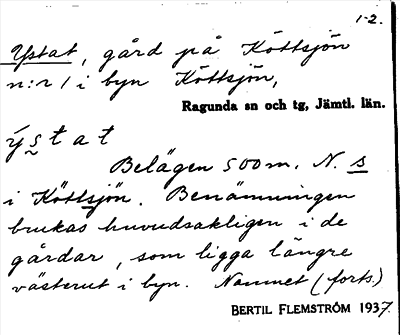 1-2.
Ystat, gård på Köttsjön
n:r 1 i byn Köttsjön,
Ragunda sn och tg, Jämtl. län.
ý s t a t
Belägen 500 m. N. s
i Köttsjön. Benämningen
brukas huvudsakligen i de
gårdar, som ligga längre
västerut i byn. Namnet (forts.)
BERTIL FLEMSTRÖM 1937.